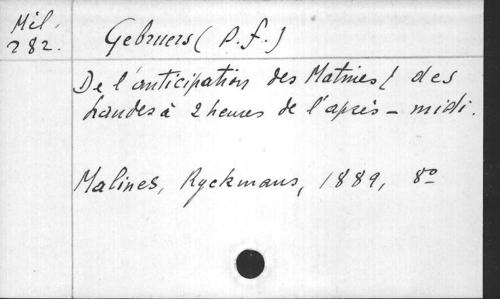 Mil.
282.
Gebruers (P. f.)
De l'anticipation des Matines / des
Laudes à 2 heures de l'après-midi.
Malines, Ryckmans, 1889, 8º